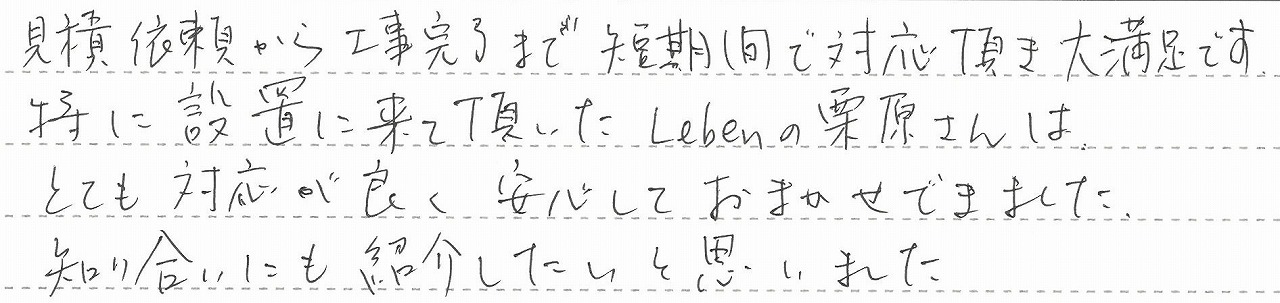 見積依頼から工事完了まで短期間で対応頂き大満足です.
特に設置に来て頂いたLebenの栗原さんは.
とても対応が良く安心しておまかせできました.
知り合いにも紹介したいと思いました